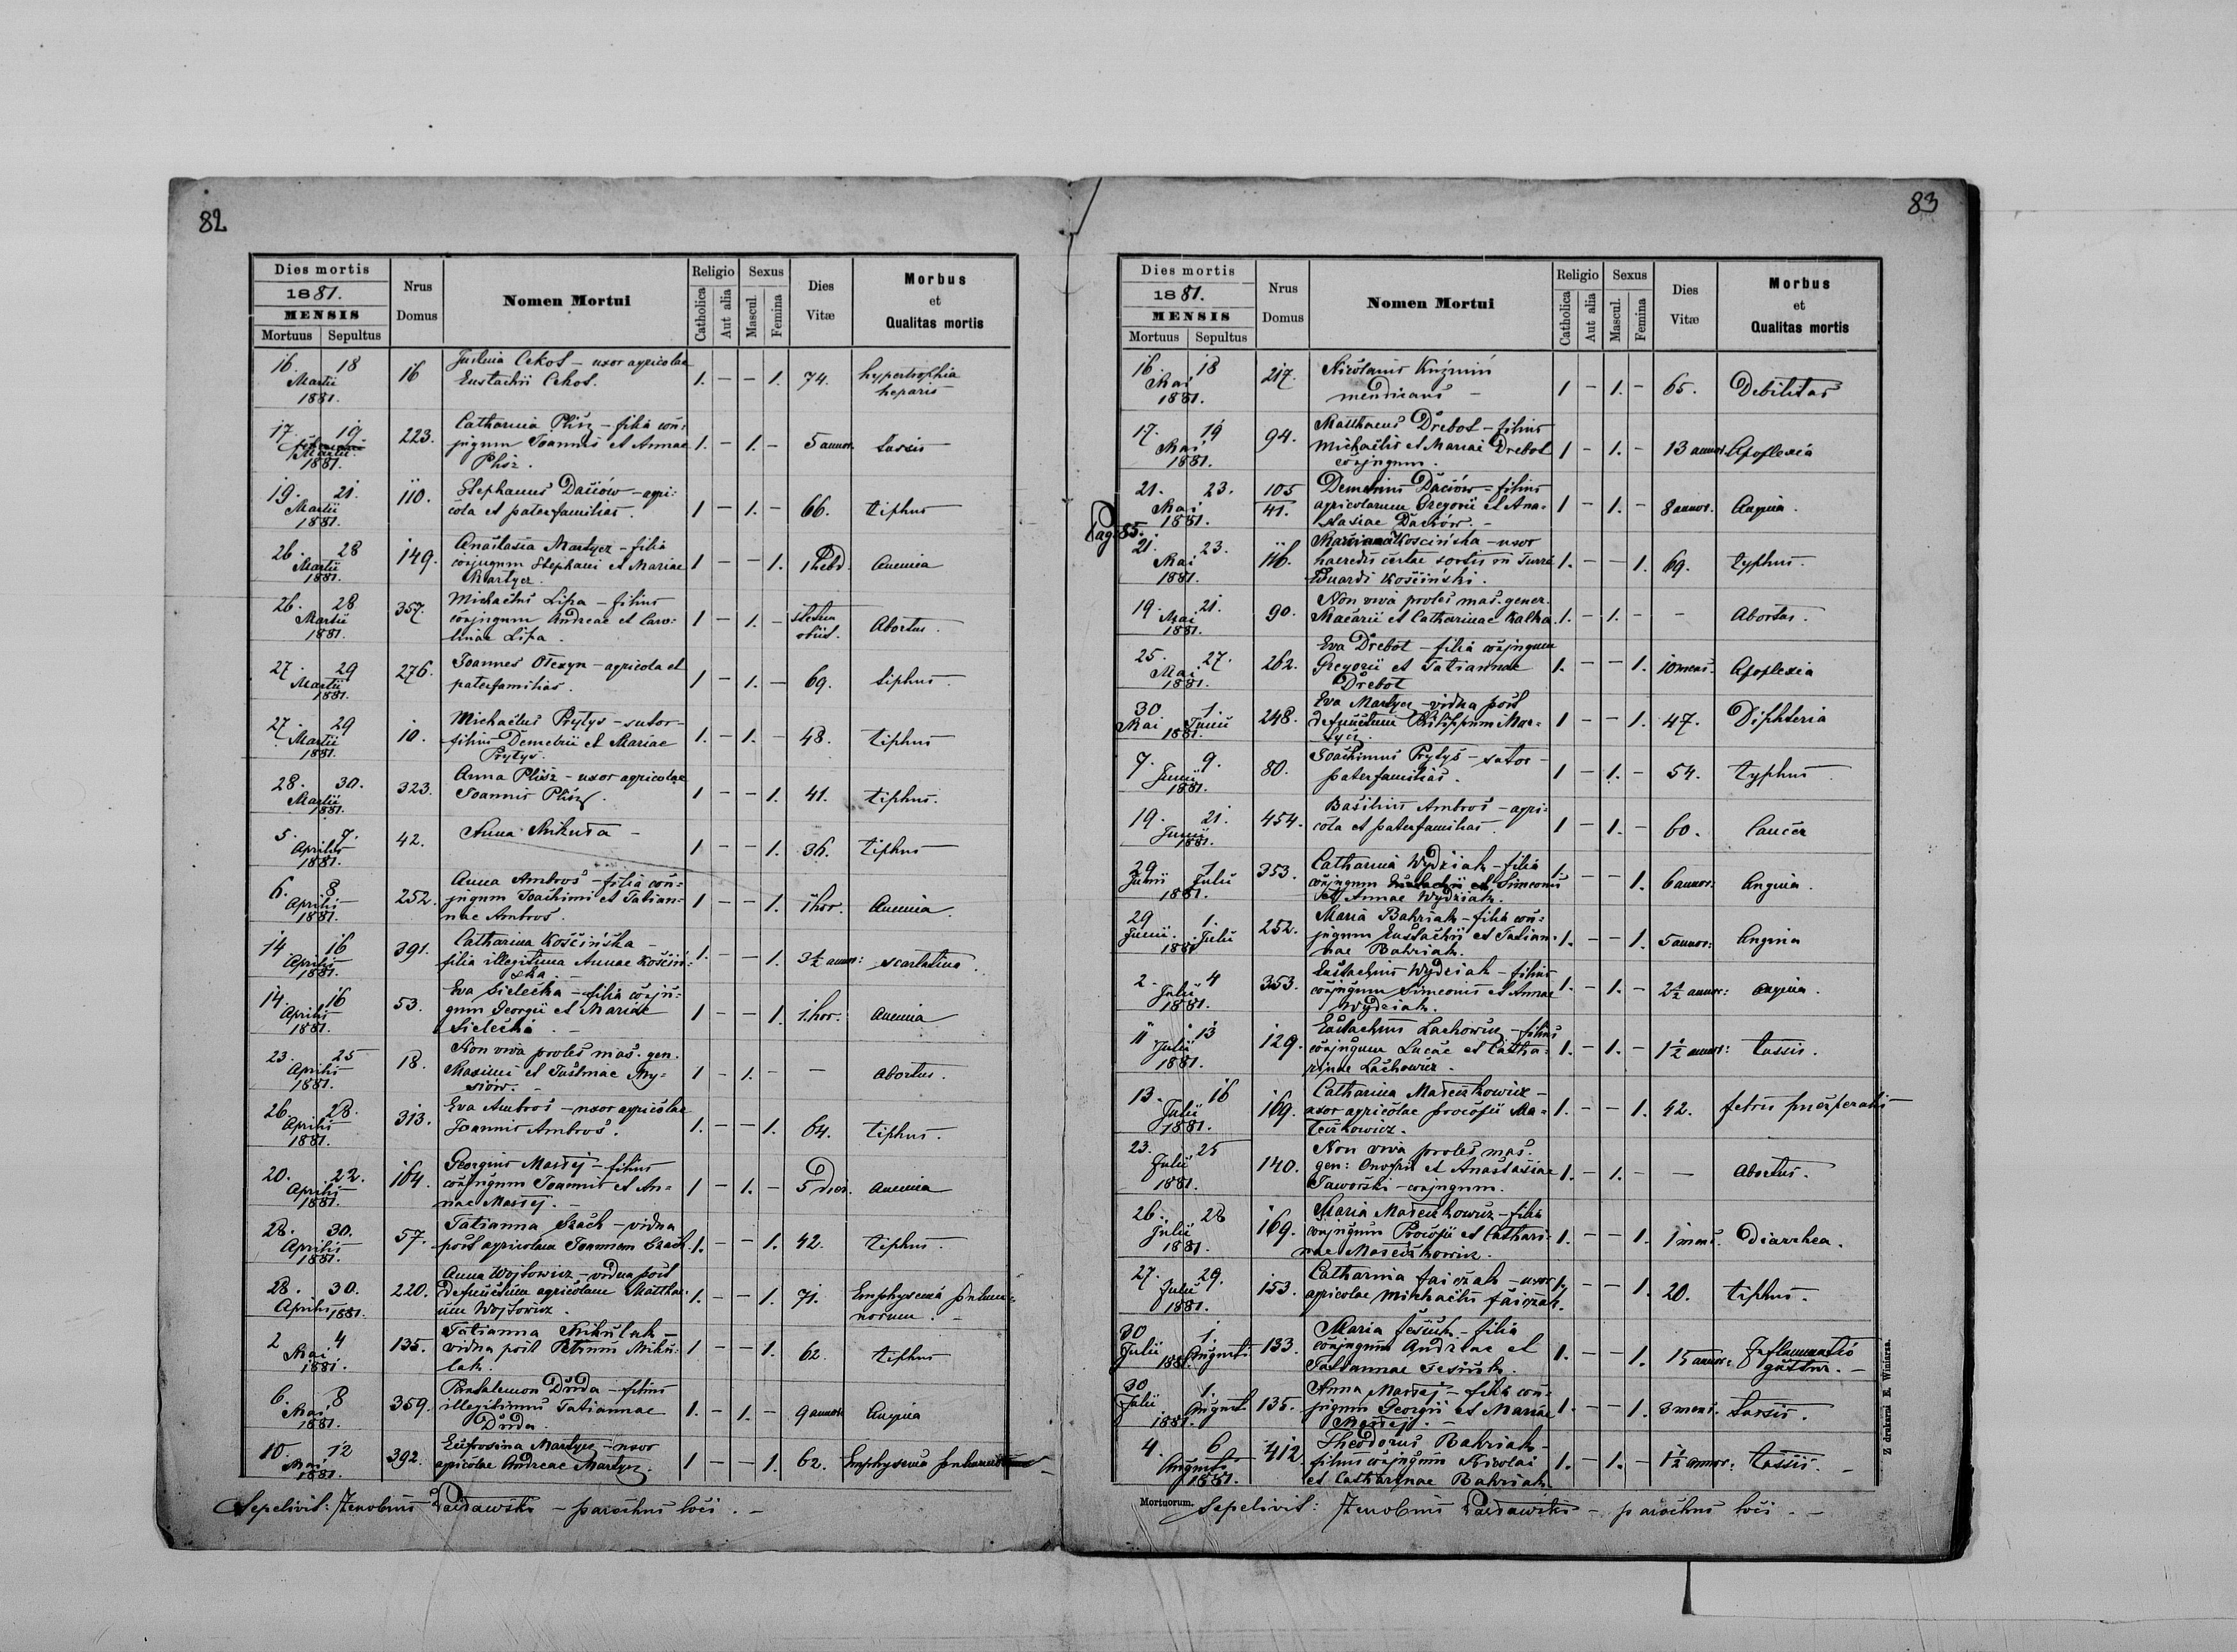 82
Dies mortis
1881.
MENSIS
Mortuus Sepultus
Nrus
Domus
Nomen Mortui
Religio
Catholica
Aut alia
Sexus
Mascul.
Femina
Dies
Vitæ
Morbus
et
Qualitas mortis
16. 18
Martii
1881.
16
Justina Cekot – uxor agricolae
Eustachii Cekot.
1. – – 1. 74.
hypertrophia
heparis
17. 19
Martii
1881.
223.
Catharina Plisz – filia con=
jugum Joannis et Annae
Plisz.
1. – 1. – 5 annor. tussis
19. 21.
Martii
1881.
110.
Stephanus Daciów – agri=
cola et paterfamilias.
1 – 1. – 66. tiphus
26. 28
Martii
1881.
149.
Anastasia Martycz – filia
conjugum Stephani et Mariae
Martycz.
1 – – 1. 1 hebd. Anemia
26. 28
Martii
1881.
357.
Michaelus Lipa – filius
conjugum Andreae et Caro=
linae Lipa.
1 – 1. –
statim
obiit.
Abortus.
27. 29
Martii
1881.
276.
Joannes Olexyn – agricola et
paterfamilias.
1 – 1. – 69. tiphus.
27. 29
Martii
1881.
10.
Michaelus Prytys – sutor –
filius Demetrii et Mariae
Prytys.
1. – 1. – 48. tiphus
28. 30.
Martii
1881.
323.
Anna Plisz – uxor agricolae
Joannis Plisz.
1 – – 1. 41. tiphus.
5. 7.
Aprilis
1881.
42.
Anna Mikuła –
1 – – 1. 36. tiphus
6. 8
Aprilis
1881.
252.
Anna Ambros – filia con=
jugum Joachimi et Tatian=
nae Ambros.
1 – – 1. 1 hor. Anemia.
14 16
Aprilis
1881.
391.
Catharina Kościńska –
filia illegitima Annae Kościń=
ska
1. – – 1. 3½ annor: scarlatina.
14. 16
Aprilis
1881.
53.
Eva Sielecka – filia conju=
gum Georgii et Mariae
Sielecki. –
1 – – 1. 1. hor. Anemia
23. 25
Aprilis
1881.
18.
Non viva proles mas. gen.
Maximi et Justinae
1 – 1. – – Abortus.
26. 28.
Aprilis
1881.
313.
Eva Ambros – uxor agricolae
Joannis Ambros.
1. – – 1. 64. tiphus.
20. 22.
Aprilis
1881.
164.
Georgius Maślej – filius
conjugum Joannis et An=
nae Maślej. –
1 – 1. – 5 dier. Anemia
28. 30.
Aprilis
1881.
57.
Tatianna Szach – vidua
post agricolam Joannem Szach
1. – – 1. 42. tiphus.
28. 30.
Aprilis 1881.
220.
Anna Wojtowicz – vidua post
defunctum agricolam Matthae=
um Wojtowicz.
1. – – 1. 71.
Emphysema pulmo=
norum. –
2 4
Mai
1881.
135.
Tatianna Mikulak –
vidua post Petrum Miku=
lak.
1 – – 1. 62. tiphus
6. 8
Mai
1881.
359.
Pantalemon Duda – filius
illegitimus Tatiannae
Duda.
1. – 1. – 9 annor. Angina
10. 12
Mai
1881.
392.
Eufrosina Martycz – uxor
agricolae Andreae Martycz.
1 – – 1. 62. Emphysema
Sepelivit: Zenobius Paidawski – parochus loci. –
83
Dies mortis
1881.
MENSIS
Mortuus Sepultus
Nrus
Domus
Nomen Mortui
Religio
Catholica
Aut alia
Sexus
Mascul.
Femina
Dies
Vitæ
Morbus
et
Qualitas mortis
16. 18
Mai
1881.
217.
Nicolaus Kuźmin
mendicans –
1 – 1. – 65. Debilitas
17. 19
Mai
1881.
94.
Matthaeus Drebot – filius
Michaelis et Mariae Drebot
conjugum.
1 – 1. – 13 annor. Apoplexia
21. 23.
Mai
1881.
105
41.
Demetrius Daciów – filius
agricolarum Gregorii et Ana=
stasiae Daciów. –
1 – 1. – 8 annor. Angina.
Pag: 85.
21. 23.
Mai
1881.
116.
Marianna Kościńska – uxor
haeredis certae sortis in Turze
Eduardi Kościński.
1. – – 1. 69. typhus.
19. 21.
Mai
1881.
90.
Non viva proles mas. gener.
Macarii et Catharinae Kalka.
1. – 1. – – Abortus.
25. 27.
Mai
1881.
262.
Eva Drebot – filia conjugum
Gregorii et Tatiannae
Drebot
1. – – 1. 10 mens. Apoplexia
30 1.
Mai Junii
1881.
248.
Eva Martycz – vidua post
defunctum Philippum Mar=
tycz.
1 – – 1. 47. Diphteria
7. 9.
Junii
1881.
80.
Joachimus Prytys – sutor –
paterfamilias.
1 – 1. – 54. typhus.
19. 21.
Junii
1881.
454.
Basilius Ambros – agri=
cola et paterfamilias.
1 – 1. – 60. Cancer
29 1
Junii Julii
1881.
353.
Catharina Wydziak – filia
conjugum Simeonis
et Annae Wydziak.
1. – – 1. 6 annor: Angina.
29 1.
Junii. Julii
1881.
252.
Maria Bahriak – filia con=
jugum Eustachii et Tatian=
nae Bahriak.
1. – – 1. 5 annor: Angina
2. 4
Julii
1881.
353.
Eustachius Wydziak – filius
conjugum Simeonis et Annae
Wydziak.
1. – 1. – 2½ annor: angina.
11 13
Julii
1881.
129.
Eustachius Lachowicz – filius
conjugum Lucae et Catha=
rinae Lachowicz.
1. – 1. – 1½ annor: tussis.
13. 16
Julii
1881.
169.
Catharina Mateszkowicz –
uxor agricolae Procopii Ma=
teszkowicz.
1. – – 1. 42. febris puerperalis
23. 25
Julii
1881.
140.
Non viva proles mas.
gen: Onufrii et Anastasiae
Jaworski – conjugum.
1. – 1. – – Abortus.
26. 28
Julii
1881.
169.
Maria Mateszkowicz – filia
conjugum Procopii et Cathari=
nae Mateszkowicz.
1. – – 1. 1 mens. Diarrhea.
27. 29.
Julii
1881.
153.
Catharina – uxor
agricolae Michaelis
1. – – 1. 20. tiphus.
30 1.
Julii Augusti
1881
133.
Maria Jesiuk – filia
conjugum Andreae et
Tatiannae Jesiuk.
1. – – 1. 15 annor:
Inflammatio
guttur. –
30 1.
Julii Augusti
1881.
135.
Anna Maślej – filia con=
jugum Georgii et Mariae
Maślej. –
1. – – 1. 3 mens. tussis.
4. 6
Augusti
1881.
412
Theodorus Bahriak –
filius conjugum Nicolai
et Catharinae Bahriak
1. – 1. – 1½ annor: tussis. –
Mortuorum.
Sepelivit: Zenobius Paidawski – parochus loci. –
Z drukarni E. Winiarza.